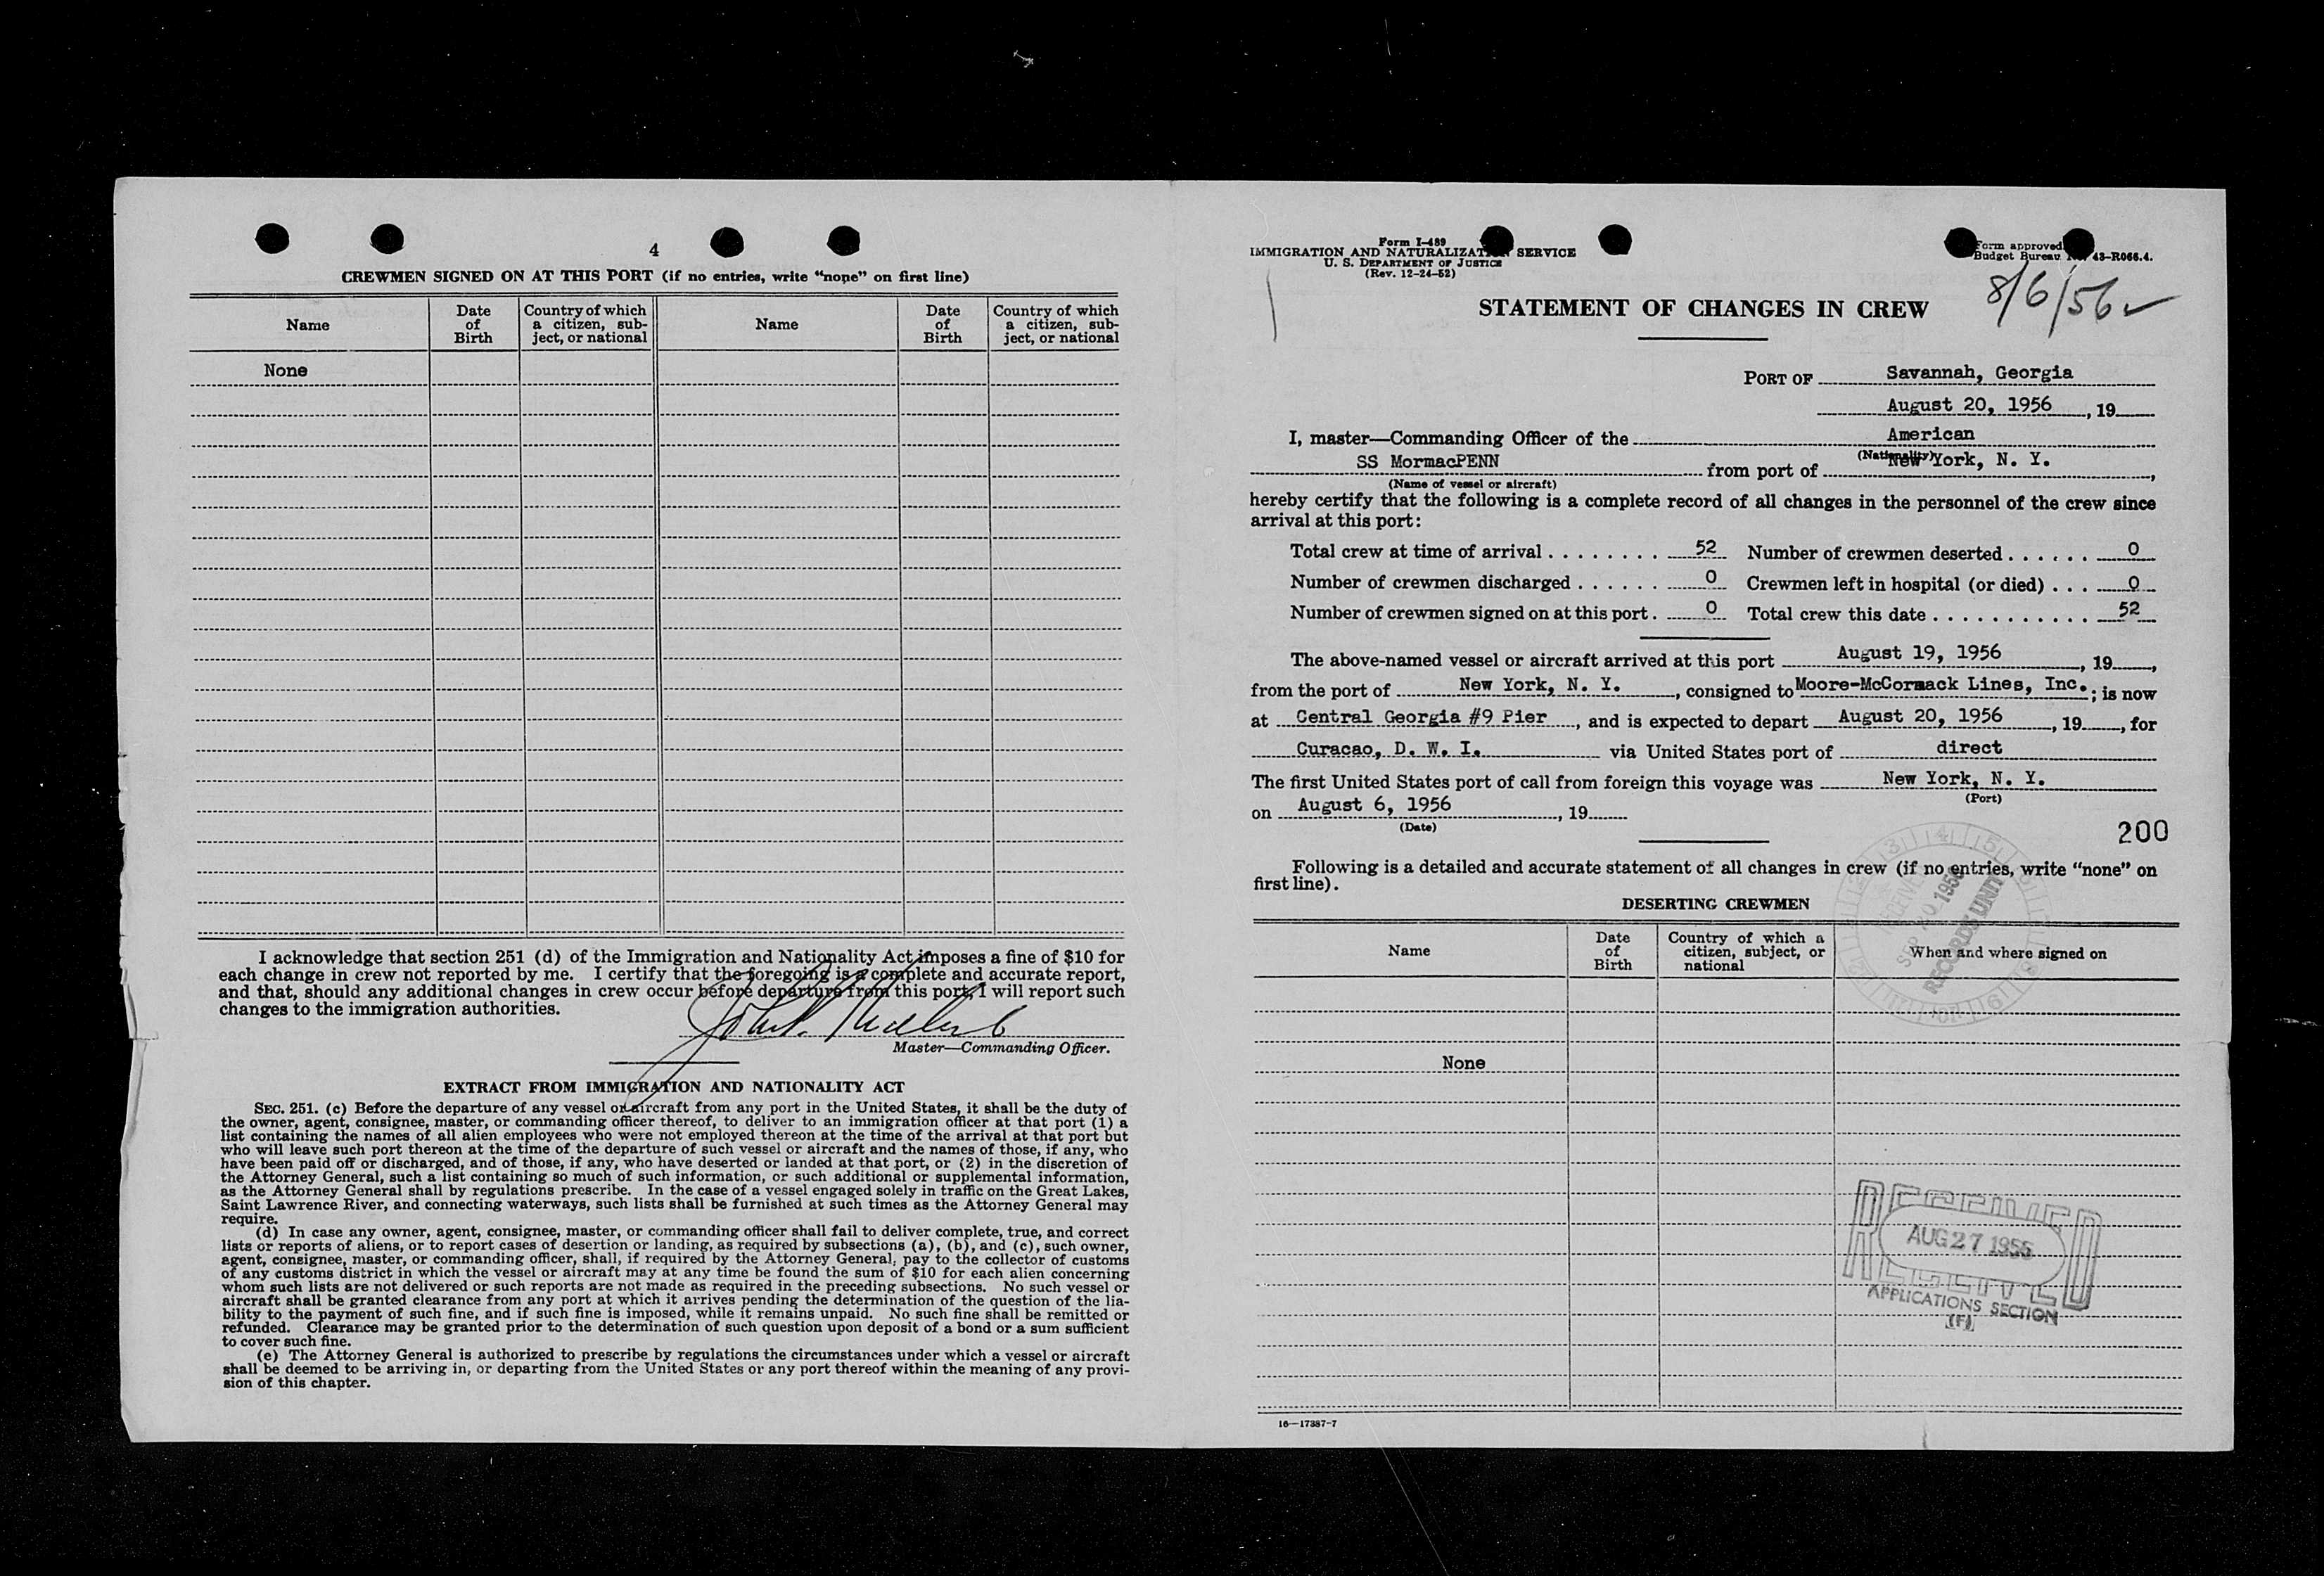 4
CREWMEN SIGNED ON AT THIS PORT (if no entries, write “none” on first line)
Name
Date of Birth
Country of which a citizen, subject, or national
Name
Date of Birth
Country of which a citizen, subject, or national
None
I acknowledge that section 251 (d) of the Immigration and Nationality Act imposes a fine of $10 for
each change in crew not reported by me. I certify that the foregoing is a complete and accurate report,
and that, should any additional changes in crew occur before departure from this port, I will report such
changes to the immigration authorities.
Master—Commanding Officer.
EXTRACT FROM IMMIGRATION AND NATIONALITY ACT
SEC. 251. (c) Before the departure of any vessel or aircraft from any port in the United States, it shall be the duty of
the owner, agent, consignee, master, or commanding officer thereof, to deliver to an immigration officer at that port (1) a
list containing the names of all alien employees who were not employed thereon at the time of the arrival at that port but
who will leave such port thereon at the time of the departure of such vessel or aircraft and the names of those, if any, who
have been paid off or discharged, and of those, if any, who have deserted or landed at that port, or (2) in the discretion of
the Attorney General, such a list containing so much of such information, or such additional or supplemental information,
as the Attorney General shall by regulations prescribe. In the case of a vessel engaged solely in traffic on the Great Lakes,
Saint Lawrence River, and connecting waterways, such lists shall be furnished at such times as the Attorney General may
require.
(d) In case any owner, agent, consignee, master, or commanding officer shall fail to deliver complete, true, and correct
lists or reports of aliens, or to report cases of desertion or landing, as required by subsections (a), (b), and (c), such owner,
agent, consignee, master, or commanding officer, shall, if required by the Attorney General, pay to the collector of customs
of any customs district in which the vessel or aircraft may at any time be found the sum of $10 for each alien concerning
whom such lists are not delivered or such reports are not made as required in the preceding subsections. No such vessel or
aircraft shall be granted clearance from any port at which it arrives pending the determination of the question of the lia-
bility to the payment of such fine, and if such fine is imposed, while it remains unpaid. No such fine shall be remitted or
refunded. Clearance may be granted prior to the determination of such question upon deposit of a bond or a sum sufficient
to cover such fine.
(e) The Attorney General is authorized to prescribe by regulations the circumstances under which a vessel or aircraft
shall be deemed to be arriving in, or departing from the United States or any port thereof within the meaning of any provi-
sion of this chapter.
Form I-489
IMMIGRATION AND NATURALIZATION SERVICE
U. S. DEPARTMENT OF JUSTICE
(Rev. 12-24-52)
Form approved.
Budget Bureau No. 43-R066.4.
8/6/56 ✓
STATEMENT OF CHANGES IN CREW
PORT OF Savannah, Georgia
August 20, 1956, 19
I, master—Commanding Officer of the American
(Nationality)
SS MormacPENN from port of New York, N. Y.,
(Name of vessel or aircraft)
hereby certify that the following is a complete record of all changes in the personnel of the crew since
arrival at this port:
Total crew at time of arrival . . . . . . . . 52 Number of crewmen deserted . . . . . . 0
Number of crewmen discharged . . . . . . 0 Crewmen left in hospital (or died) . . . 0
Number of crewmen signed on at this port . 0 Total crew this date . . . . . . . . . . . 52
The above-named vessel or aircraft arrived at this port August 19, 1956, 19,
from the port of New York, N. Y., consigned to Moore-McCormack Lines, Inc.; is now
at Central Georgia #9 Pier, and is expected to depart August 20, 1956, 19, for
Curacao, D. W. I. via United States port of direct
The first United States port of call from foreign this voyage was New York, N. Y.
(Port)
on August 6, 1956, 19
(Date)
200
Following is a detailed and accurate statement of all changes in crew (if no entries, write “none” on
first line).
DESERTING CREWMEN
RECORDS UNIT
Name
Date of Birth
Country of which a citizen, subject, or national
When and where signed on
None
RECEIVED
AUG 27 1956
APPLICATIONS SECTION
(F)
16—17387-7